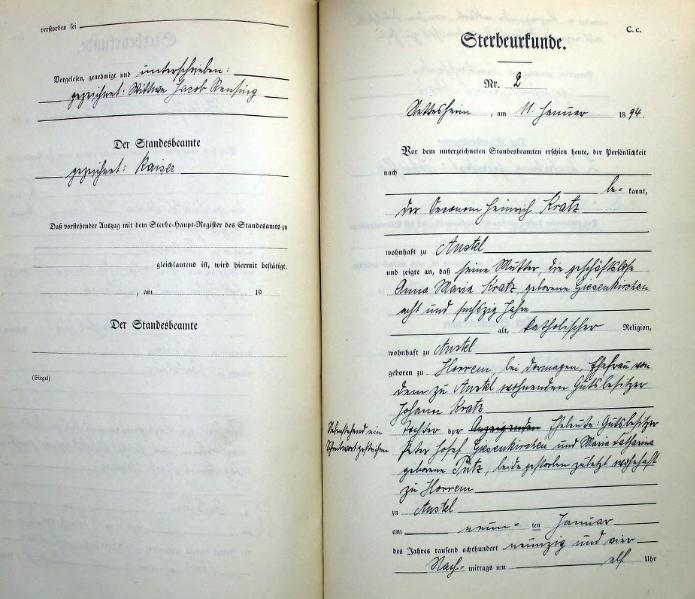 verstorben sei
Vorgelesen, genehmigt und unterschrieben:
gezeichnet: Wittwe Jacob
Der Standesbeamte
gezeichnet: Kaiser
Daß vorstehender Auszug mit dem Sterbe-Haupt-Register des Standesamts zu
gleichlautend ist, wird hiermit bestätigt.
, am 19
Der Standesbeamte
(Siegel)
C. c.
Sterbeurkunde.
Nr. 2
Nettesheim, am 11. Januar 1894.
Vor dem unterzeichneten Standesbeamten erschien heute, der Persönlichkeit
nach
be- kannt,
der Oeconom Heinrich Kratz
wohnhaft zu Anstel
und zeigte an, daß seine Mutter, die geschäftslose
Anna Maria Kratz geborene Giesenkirchen
acht und sechszig Jahre
alt, katholischer Religion,
wohnhaft zu Anstel
geboren zu Horrem, bei Dormagen, Ehefrau von
dem zu Anstel wohnenden Gutsbesitzer
Johann Kratz
Tochter der Anzeigenden Eheleute: Gutsbesitzer
Vorstehend ein
Druckwort gestrichen
Peter Josef Giesenkirchen und Maria Catharina
geborene Pütz, beide gestorben zuletzt wohnhaft
zu Horrem
zu Anstel
am neun- ten Januar
des Jahres tausend achthundert neunzig und vier
Nach- mittags um elf Uhr